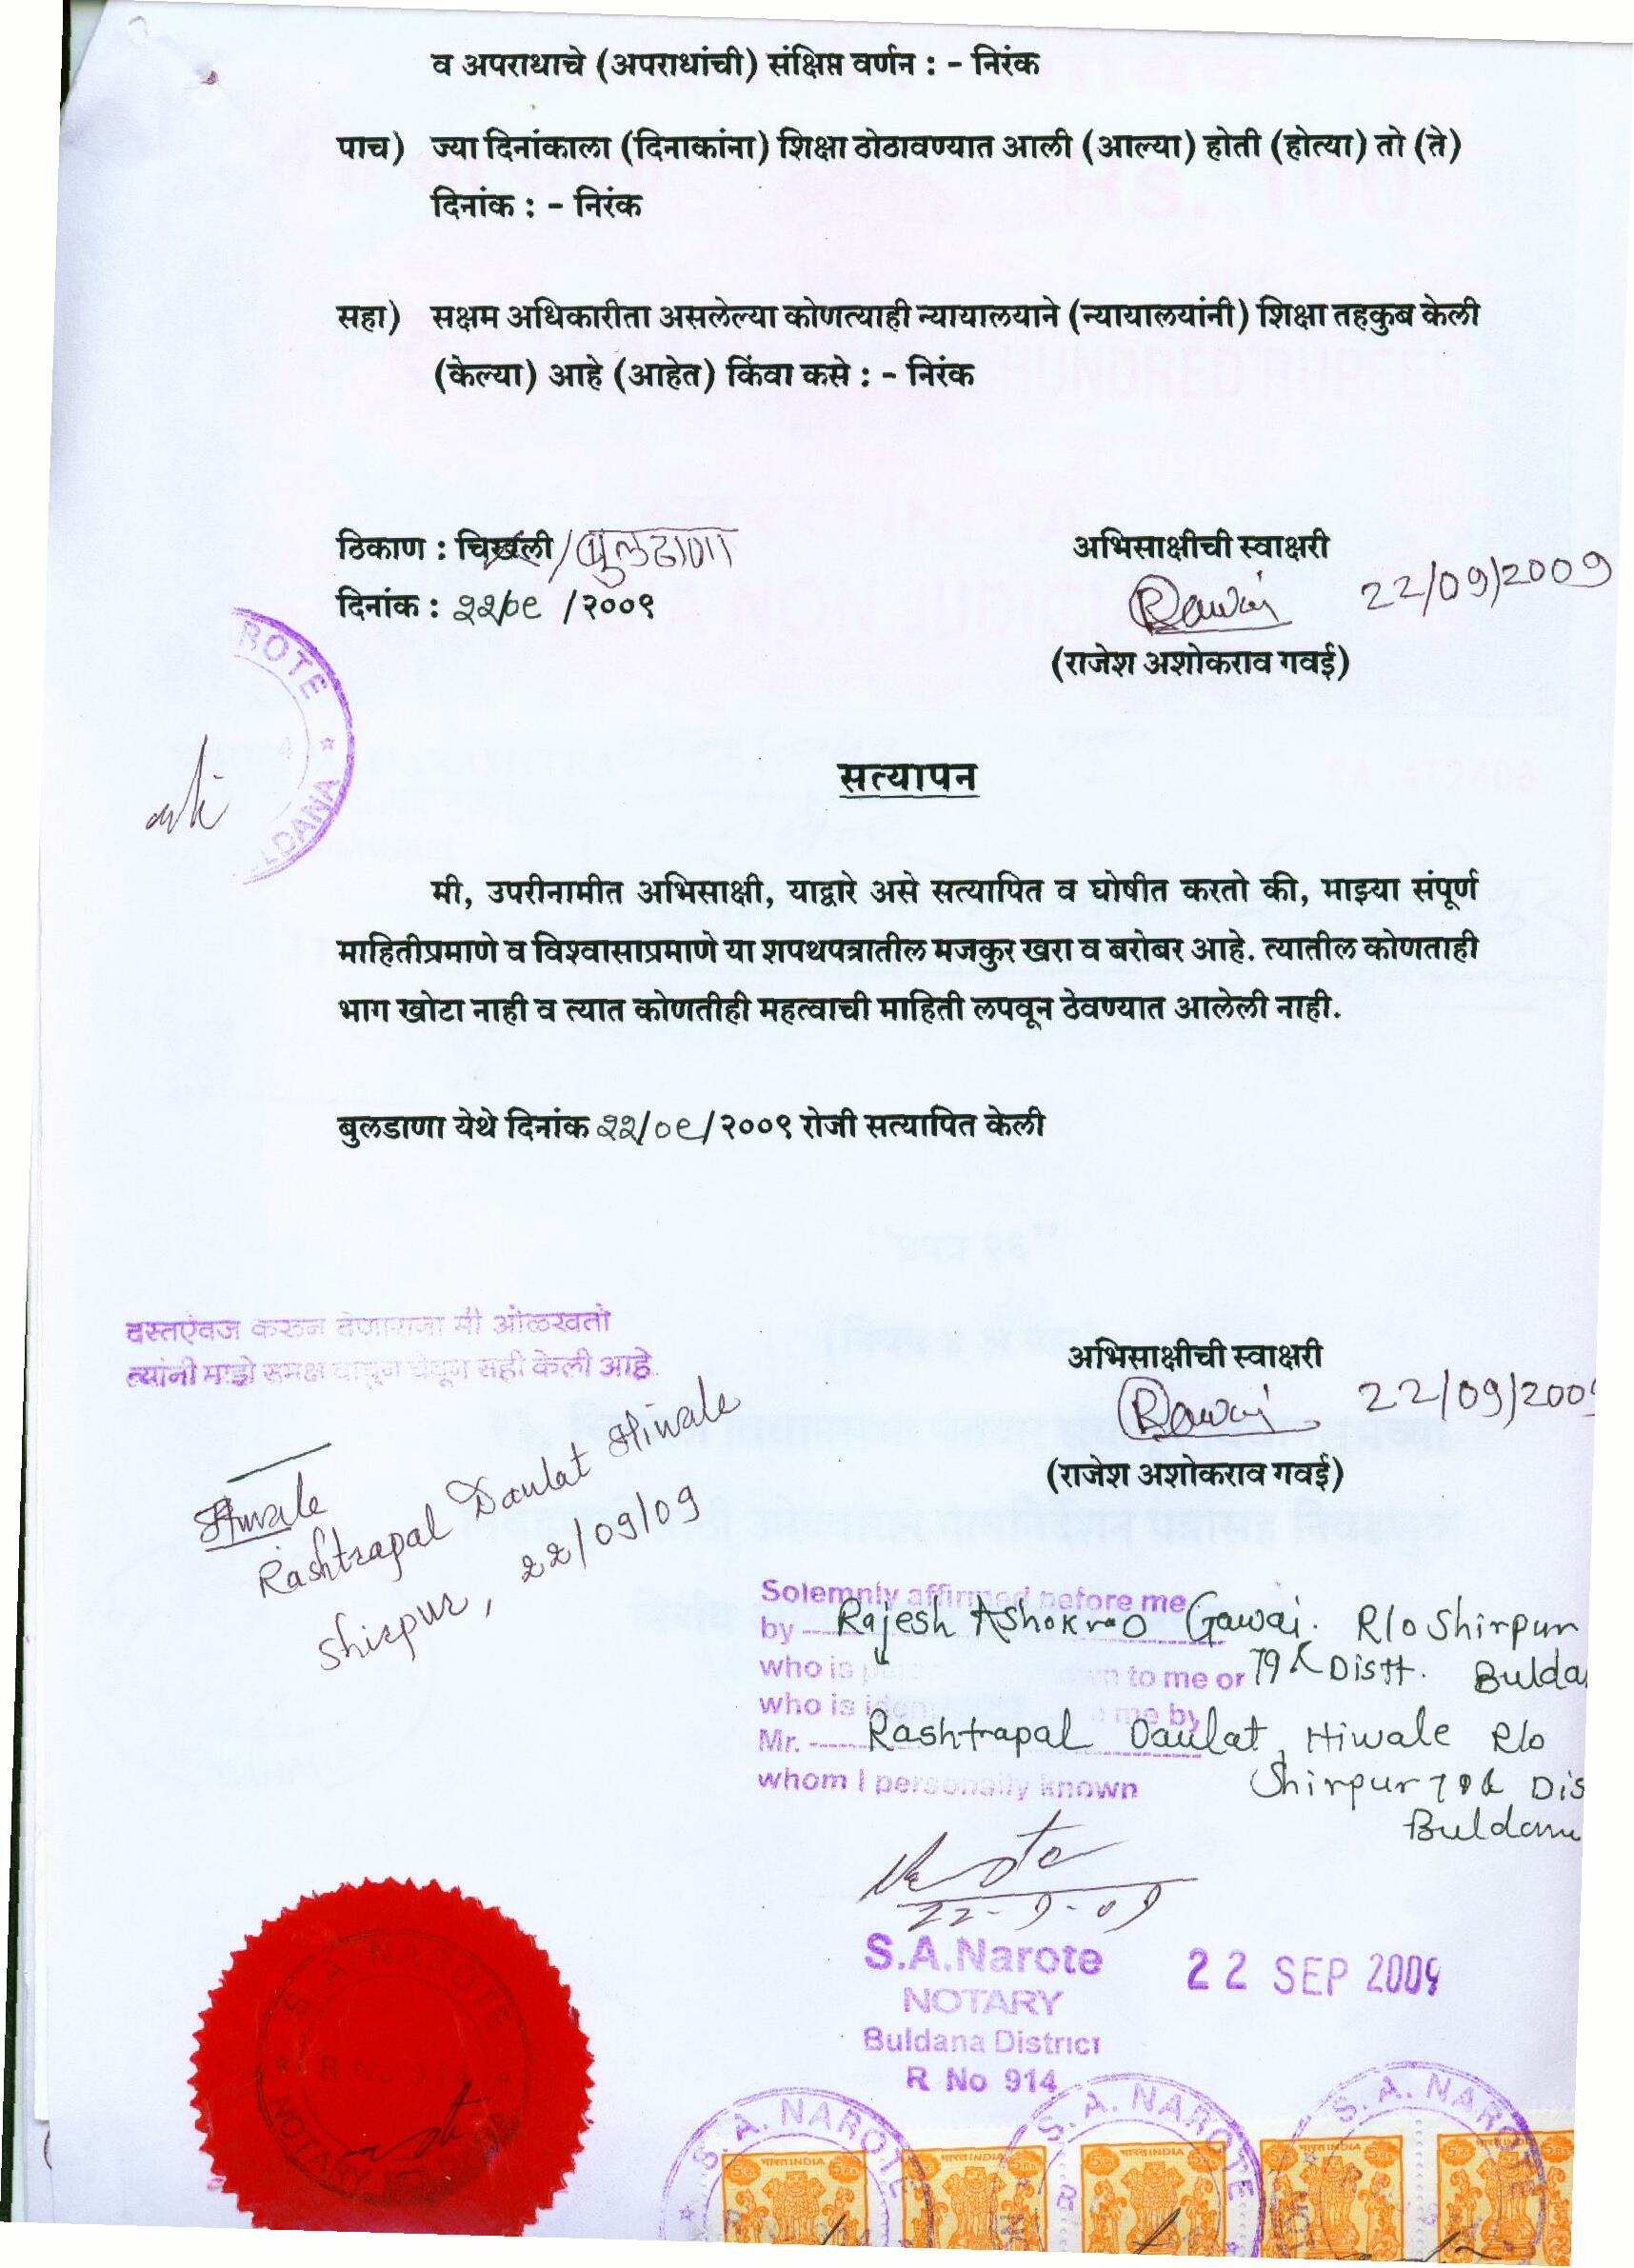 व अपराधाचे (अपराधांची) संक्षिप्त वर्णन : - निरंक
पाच) ज्या दिनांकाला (दिनाकांना) शिक्षा ठोठावण्यात आली (आल्या) होती (होत्या) तो (ते)
दिनांक : - निरंक
सहा) सक्षम अधिकारीता असलेल्या कोणत्याही न्यायालयाने (न्यायालयांनी) शिक्षा तहकुब केली
(केल्या) आहे (आहेत) किंवा कसे : - निरंक
ठिकाण : चिखली / बुलढाणा
दिनांक : २२/०९ /२००९
अभिसाक्षीची स्वाक्षरी
22/09/2009
(राजेश अशोकराव गवई)
ROTE
LDANA
सत्यापन
मी, उपरीनामीत अभिसाक्षी, याद्वारे असे सत्यापित व घोषीत करतो की, माझ्या संपूर्ण
माहितीप्रमाणे व विश्वासाप्रमाणे या शपथपत्रातील मजकुर खरा व बरोबर आहे. त्यातील कोणताही
भाग खोटा नाही व त्यात कोणतीही महत्वाची माहिती लपवून ठेवण्यात आलेली नाही.
बुलडाणा येथे दिनांक २२/०९/२००९ रोजी सत्यापित केली
दस्तऐवज करून देणाराला मी ओळखतो
त्यांनी माझे समक्ष वाचून घेवून सही केली आहे.
अभिसाक्षीची स्वाक्षरी
22/09/200
(राजेश अशोकराव गवई)
Hiwale
Rashtrapal Daulat Hiwale
Shirpur, 22/09/09
Solemnly affirmed before me
by Rajesh Ashokrao Gawai. R/o Shirpur
who is to me or Distt. Bulda
who is me by
Mr. Rashtrapal Daulat Hiwale R/o
whom I personally known Shirpur Dis
Buldana
22-9-09
S.A.Narote
NOTARY
Buldana District
R No 914
22 SEP 2009
S. A. NAROTE
NOTARY
S. A. NAROTE
S. A. NAROTE
S. A. NAROTE
भारत INDIA
भारत INDIA
भारत INDIA
भारत INDIA